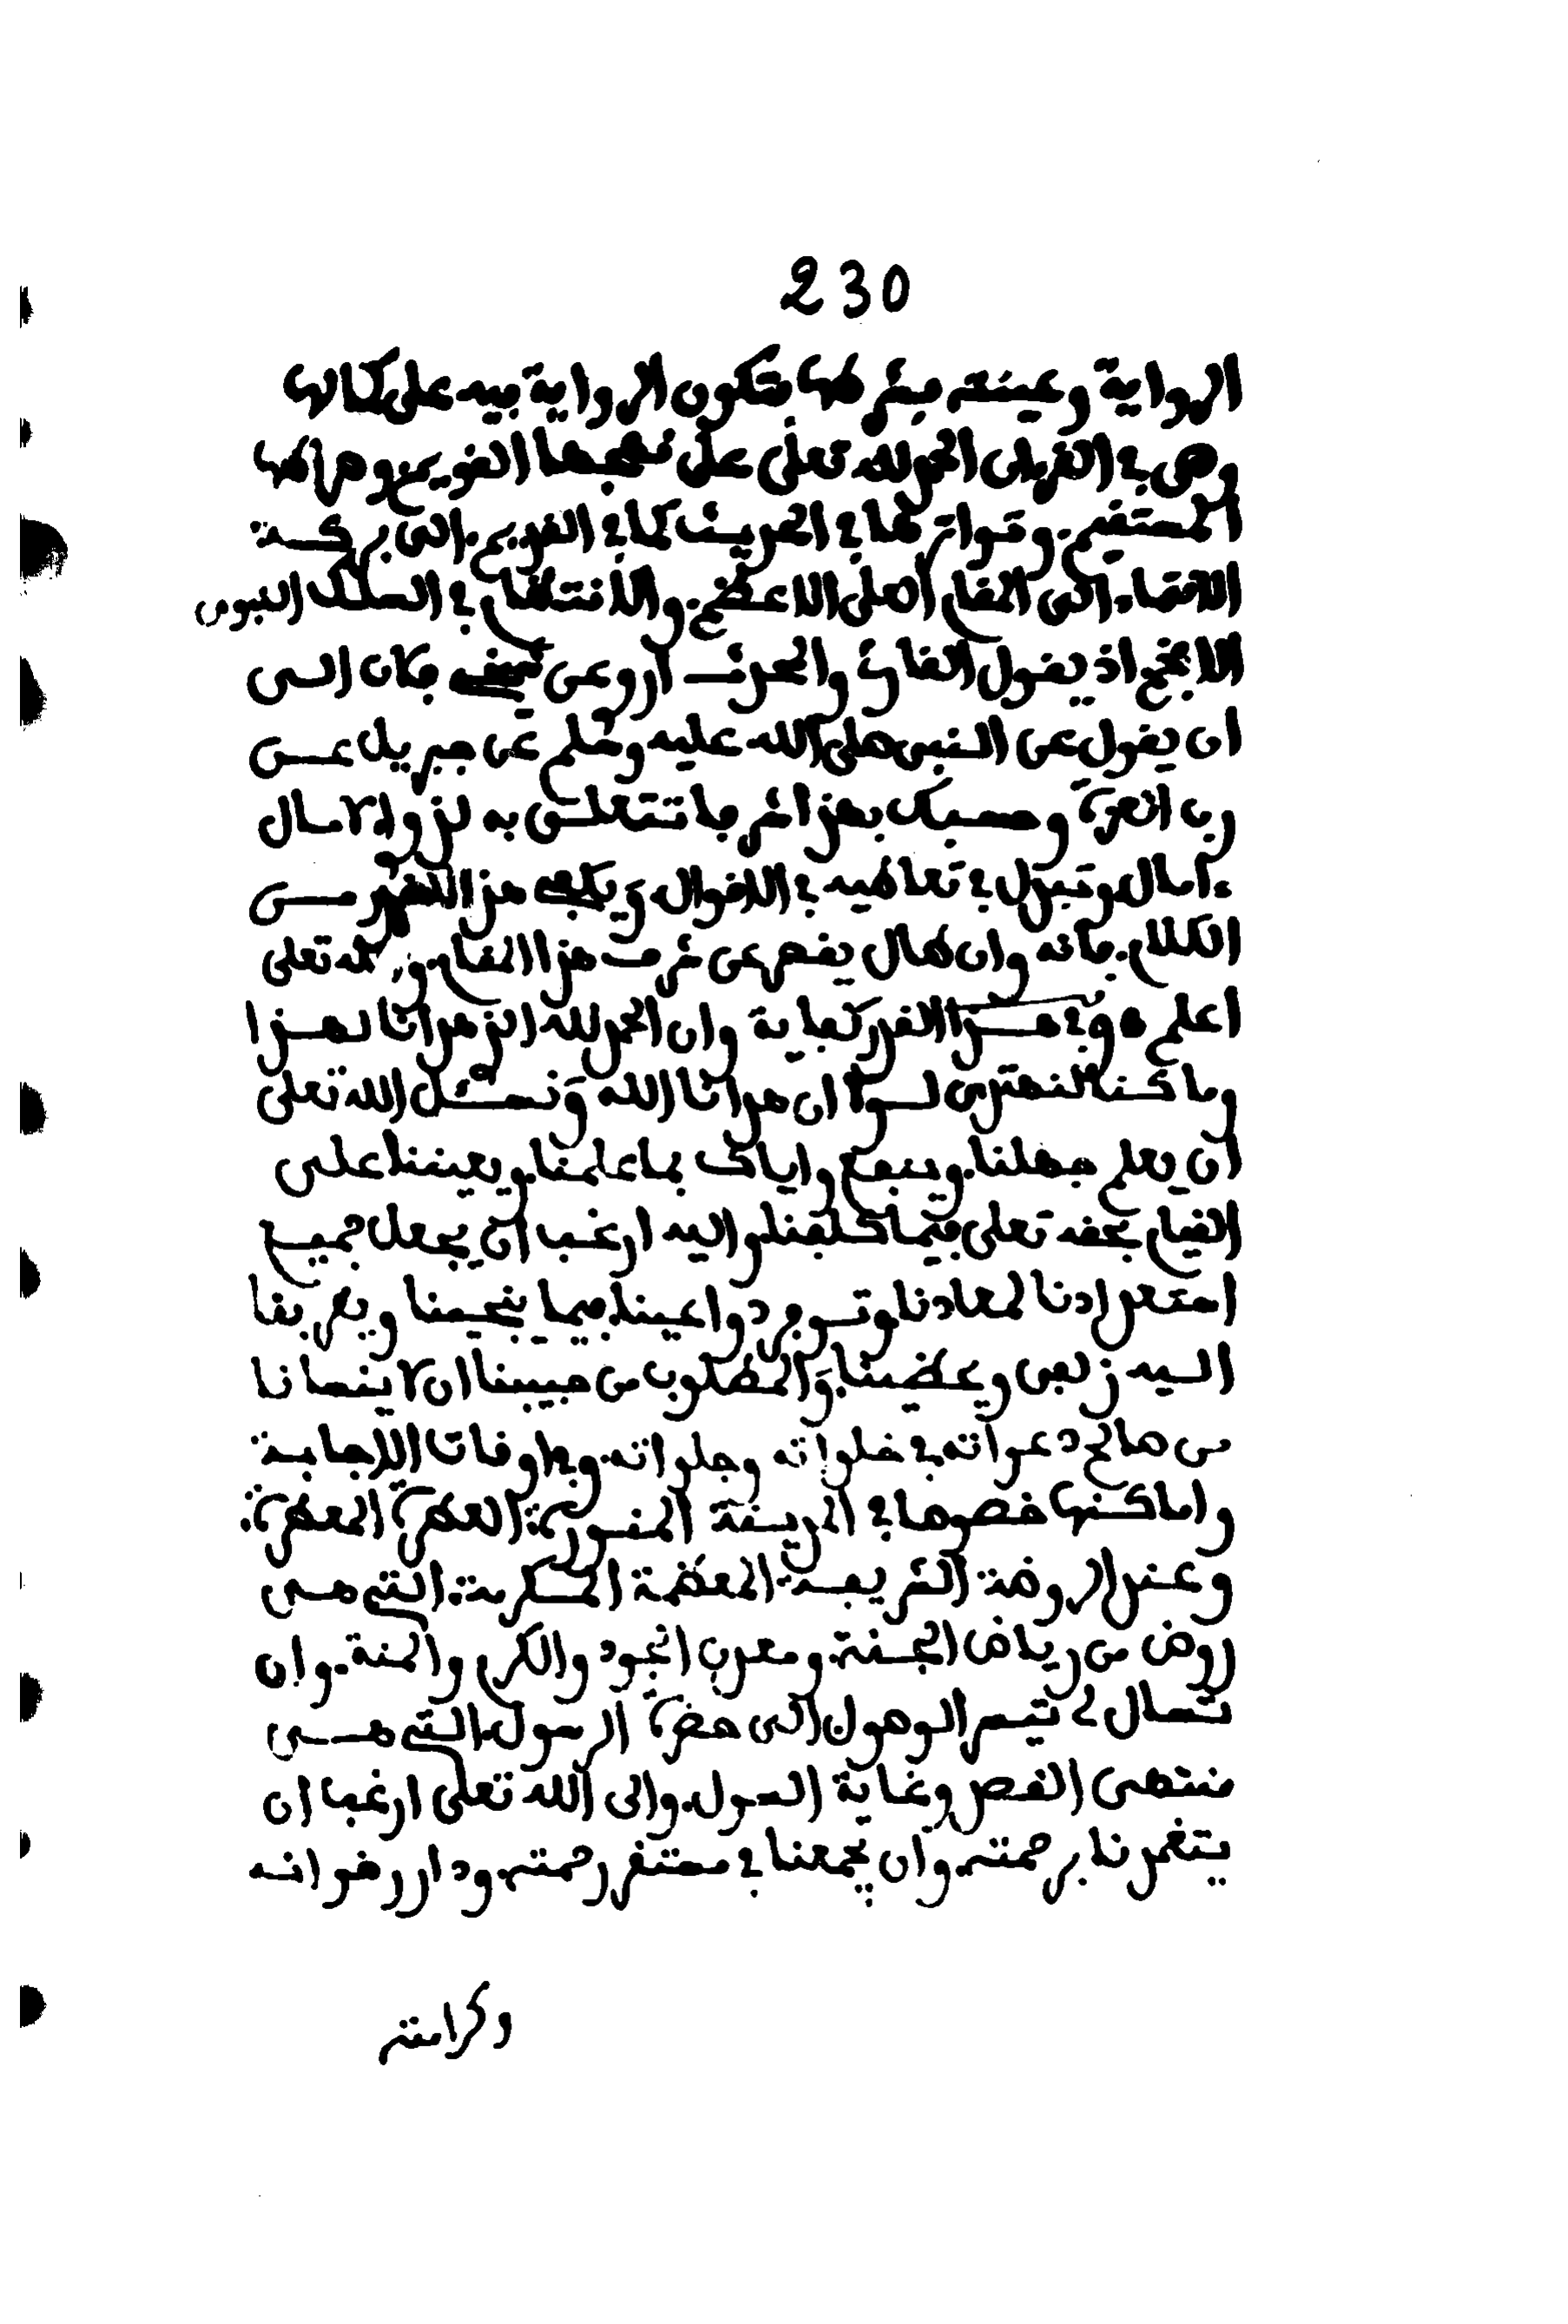 230
الرواية وعينته فبشرطها فتكون الرواية فيه على كمالها
وهي في القرءان الحمد لله تعلى على نهجها القويم وصراطها
المستقيم. وتواترها في الحديث كما في القديم. التى بركة
الانتماء الى المقام الاعلى الاعظم. والانتظام في السلك النبوى
الافخم اذ يقول القارئ والمحدث اروى عن فلان الى
ان يقول عن النبى صلى الله عليه وسلم عن جبريل عن
رب العزة وحسبك بهذا شرفا تتعلق به لذوى الامال
ءامال وتبذل في تعاطيه الاموال ويكفى هذا القدر من
الكلام. فانه وان طال يقصر عن شرف هذا المقام. والله تعلى
اعلم ه وفي هذا القدر كفاية وان الحمد لله الذى هدانا لهذا
وما كنا لنهتدى لولا ان هدانا الله ونسئل الله تعلى
ان يعلم جهلنا. وينفع واياك بما علمنا. ويعيننا على
القيام بحقه تعلى فيما كلفنا. واليه ارغب ان يجعل جميع
استعدادنا لمعادنا. وتوفر دواعينا فيما ينجينا ويقربنا
اليه زلفى ويحظينا. والمطلوب من حبيبنا ان لا ينسانا
من صالح دعواته في خلواته وجلواته. وفي اوقات الاجابة
واماكنها خصوصا في المدينة المنورة: العطرة المعطرة:
وعند الروضة الشريفة: المعظمة المكرمة: التى هي
روض من رياض الجنة. ومعدن الجود والكرم والمنة. وان
تسال لى تيسر الوصول الى حضرة الرسول. التى هي
منتهى القصد وغاية السول. والى الله تعلى ارغب ان
يتغمدنا برحمته. وان يجمعنا في مستقر رحمته. ودار رضوانه
وكرامته